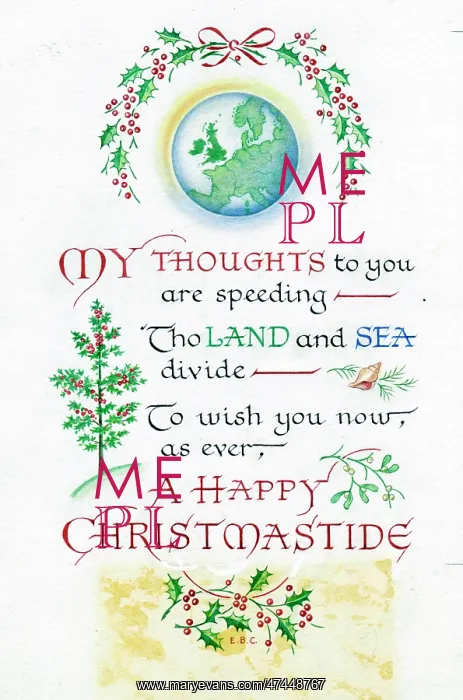 ME
PL
MY THOUGHTS to you
are speeding
'Tho LAND and SEA
divide
To wish you now,
as ever,
ME
PL
A HAPPY
CHRISTMASTIDE
E.B.C.
www.maryevans.com/47448767